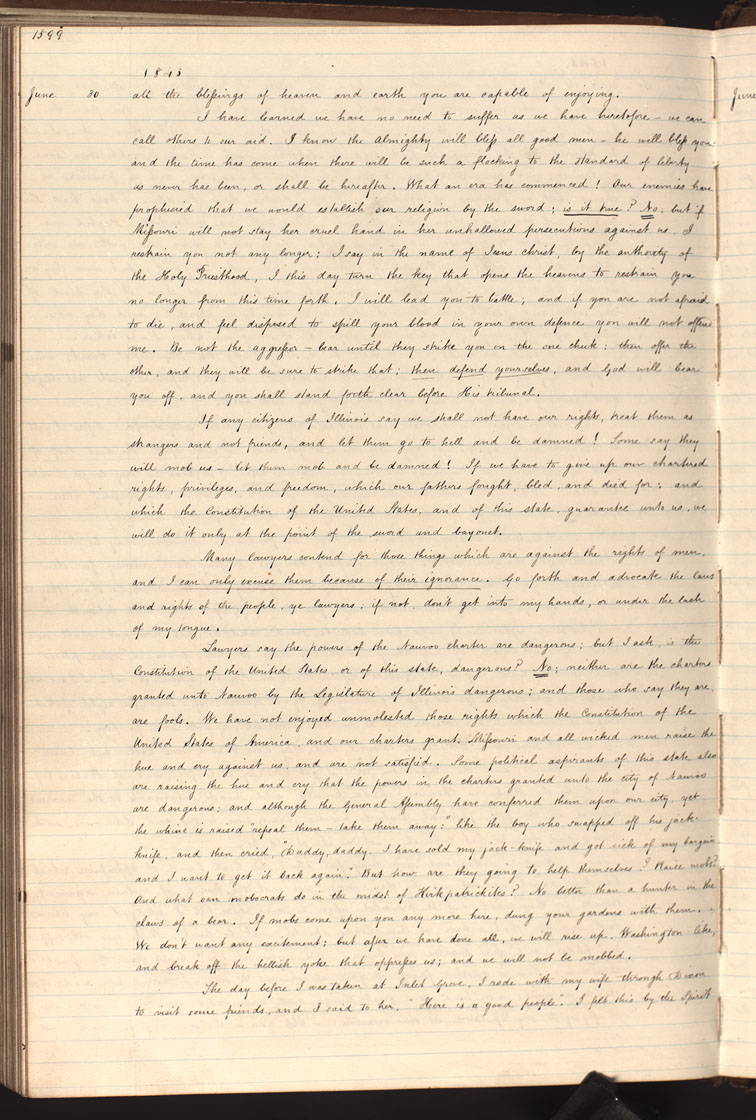 1599
1843
June 30 all the blessings of heaven and earth you are capable of enjoying.
June
I have learned we have no need to suffer as we have heretofore – we can
call others to our aid. I know the Almighty will bless all good men – he will bless you;
and the time has come when there will be such a flocking to the standard of liberty
as never has been, or shall be hereafter. What an era has commenced! Our enemies have
prophesied that we would establish our religion by the sword; is it true? No, but if
Missouri will not stay her cruel hand in her unhallowed persecutions against us, I
restrain you not any longer; I say in the name of Jesus Christ, by the authority of
the Holy Priesthood, I this day turn the key that opens the heavens to restrain you
no longer from this time forth. I will lead you to battle; and if you are not afraid
to die, and feel disposed to spill your blood in your own defence you will not offend
me. Be not the aggressor – bear until they strike you on the one cheek; then offer the
other, and they will be sure to strike that; then defend yourselves, and God will bear
you off, and you shall stand forth clear before His tribunal.
If any citizens of Illinois say we shall not have our rights, treat them as
strangers and not friends, and let them go to hell and be damned! Some say they
will mob us – let them mob and be damned! If we have to give up our chartered
rights, privileges, and freedom, which our fathers fought, bled, and died for; and
which the Constitution of the United States, and of this state, guarantee unto us, we
will do it only at the point of the sword and bayonet.
Many lawyers contend for those things which are against the rights of men,
and I can only excuse them because of their ignorance. Go forth and advocate the laws
and rights of the people, ye lawyers; if not, don't get into my hands, or under the lash
of my tongue.
Lawyers say the powers of the Nauvoo charter are dangerous; but I ask, is the
Constitution of the United States, or of this state, dangerous? No; neither are the charters
granted unto Nauvoo by the Legislature of Illinois dangerous; and those who say they are,
are fools. We have not enjoyed unmolested those rights which the Constitution of the
United States of America, and our charters grant. Missouri and all wicked men raise the
hue and cry against us, and are not satisfied. Some political aspirants of this state also
are raising the hue and cry that the powers in the charters granted unto the city of Nauvoo
are dangerous; and although the General Assembly have conferred them upon our city, yet
the whine is raised "repeal them – take them away:" like the boy who swapped off his jack-
knife, and then cried, "Daddy, daddy I have sold my jack-knife and got sick of my bargain
and I want to get it back again." But how are they going to help themselves? Raise mobs?
And what can mobocrats do in the midst of Kirkpatrickites? No better than a hunter in the
claws of a bear. If mobs come upon you any more here, dung your gardens with them.
We don't want any excitement; but after we have done all, we will rise up, Washington like,
and break off the hellish yoke that oppresses us; and we will not be mobbed.
The day before I was taken at Inlet Grove, I rode with my wife through Dixon
to visit some friends, and I said to her, "Here is a good people". I felt this by the Spirit